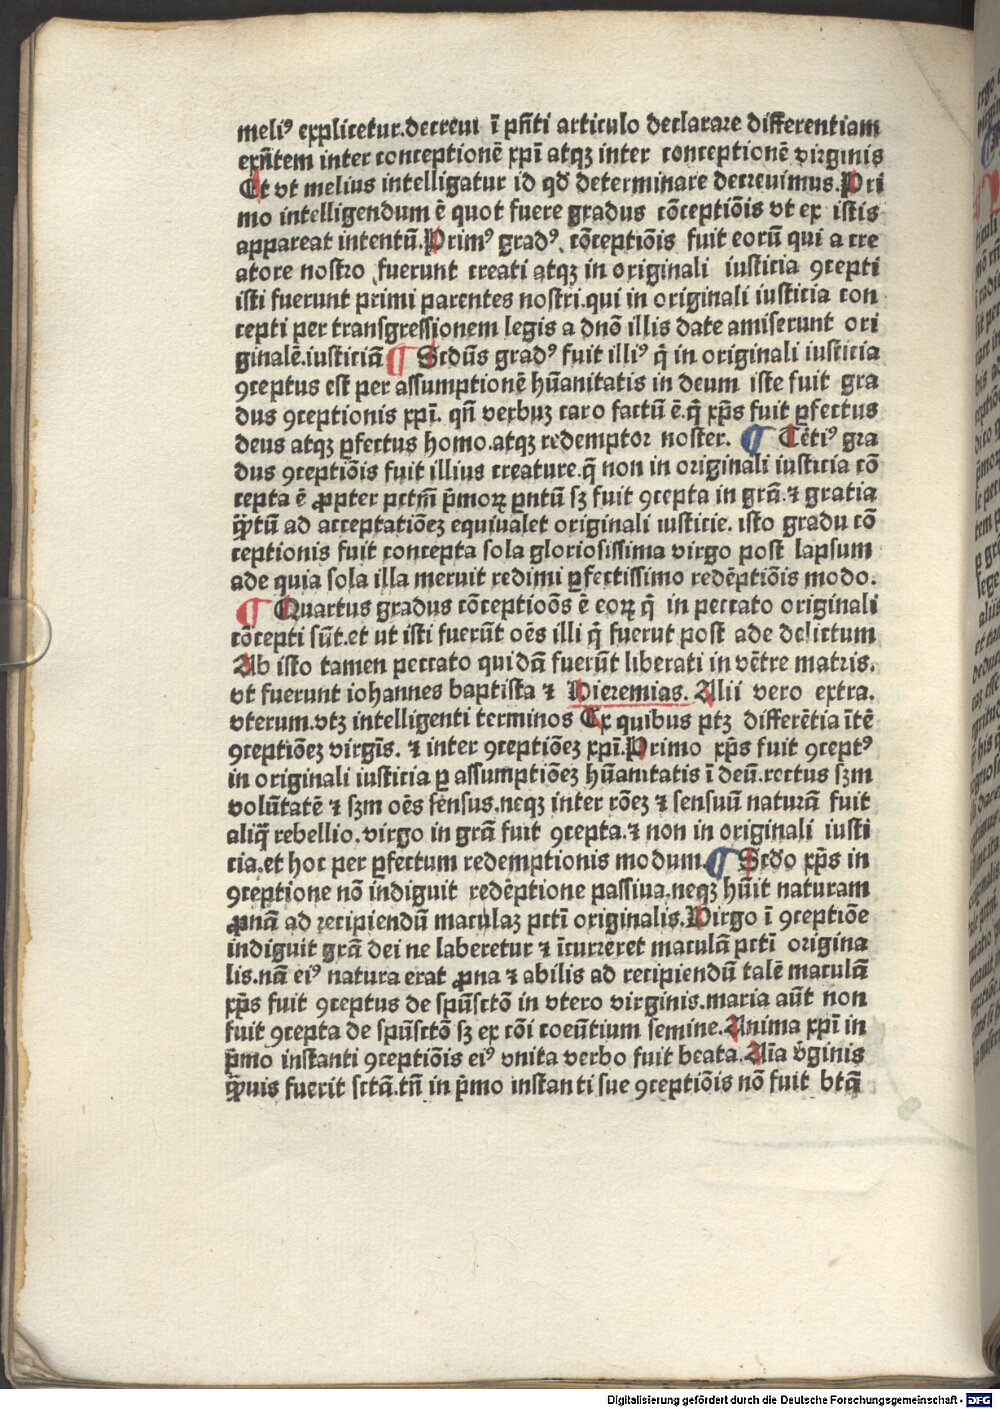 meliꝰ explicetur.decreui ī pn̄ti articulo declarare differentiam
exn̄tem inter conceptionē xpī atqꝫ inter conceptionē virginis
Et vt melius intelligatur id qd̄ determinare decreuimus.Pri
mo intelligendum ē quot fuere gradus cōceptiōis vt ex istis
appareat intentū.Primꝰ gradꝰ cōceptiōis fuit eorū qui a cre
atore nostro fuerunt creati atqꝫ in originali iusticia ꝯcepti
isti fuerunt primi parentes nostri.qui in originali iusticia con
cepti per transgressionem legis a dnō illis date amiserunt ori
ginalē.iusticiā ¶ Scdūs gradꝰ fuit illiꝰ q̄ in originali iusticia
ꝯceptus est per assumptionē hūanitatis in deum iste fuit gra
dus ꝯceptionis xpī. qn̄ verbuꝫ caro factū ē.q̄ xp̄s fuit ꝑfectus
deus atqꝫ ꝑfectus homo.atqꝫ redemptor noster. ¶ Tētiꝰ gra
dus ꝯceptiōis fuit illius creature.q̄ non in originali iusticia cō
cepta ē ꝓpter pctm̄ p̄moꝝ pn̄tū sꝫ fuit ꝯcepta in grā.⁊ gratia
q̄tū ad acceptatiōeꝫ equiualet originali iusticie. isto gradu cō
ceptionis fuit concepta sola gloriosissima virgo post lapsum
ade quia sola illa meruit redimi ꝑfectissimo redēptiōis modo.
¶ Quartus gradus cōceptioōs ē eoꝝ q̄ in peccato originali
cōcepti sūt.et ut isti fuerūt oēs illi q̄ fuerut post ade delictum
Ab isto tamen peccato quidā fuerūt liberati in vētre matris.
vt fuerunt iohannes baptista ⁊ Hieremias. Alii vero extra.
vterum.vtꝫ intelligenti terminos Ex quibus ptꝫ differētia ītē
ꝯceptiōeꝫ virgīs. ⁊ inter ꝯceptiōeꝫ xpī.Primo xp̄s fuit ꝯceptꝰ
in originali iusticia ꝑ assumptiōeꝫ hūanitatis ī deū.rectus sꝫm
volūtatē ⁊ sꝫm oēs sēnsus.neqꝫ inter rōeꝫ ⁊ sensuū naturā fuit
aliq̄ rebellio.virgo in grā fuit ꝯcepta.⁊ non in originali iusti
cia.et hoc per ꝑfectum redemptionis modum.¶ Scdo xp̄s in
ꝯceptione nō indiguit redēptione passiua.neqꝫ hūit naturam
ꝓnā ad recipiendū maculaꝫ pctī originalis.Virgo ī ꝯceptiōe
indiguit grā dei ne laberetur ⁊ īcurreret maculā pctī origina
lis.nā eiꝰ natura erat ꝓna ⁊ abilis ad recipiendū talē maculā
xp̄s fuit ꝯceptus de spūsctō in vtero virginis.maria aūt non
fuit ꝯcepta de spūsctō sꝫ ex cōi coeūtium semine.Anima xpī in
p̄mo instanti ꝯceptiōis eiꝰ vnita verbo fuit beata.Aīa v̄ginis
q̄uis fuerit sctā.tn̄ in p̄mo instanti sue ꝯceptiōis nō fuit btā
Digitalisierung gefördert durch die Deutsche Forschungsgemeinschaft - DFG